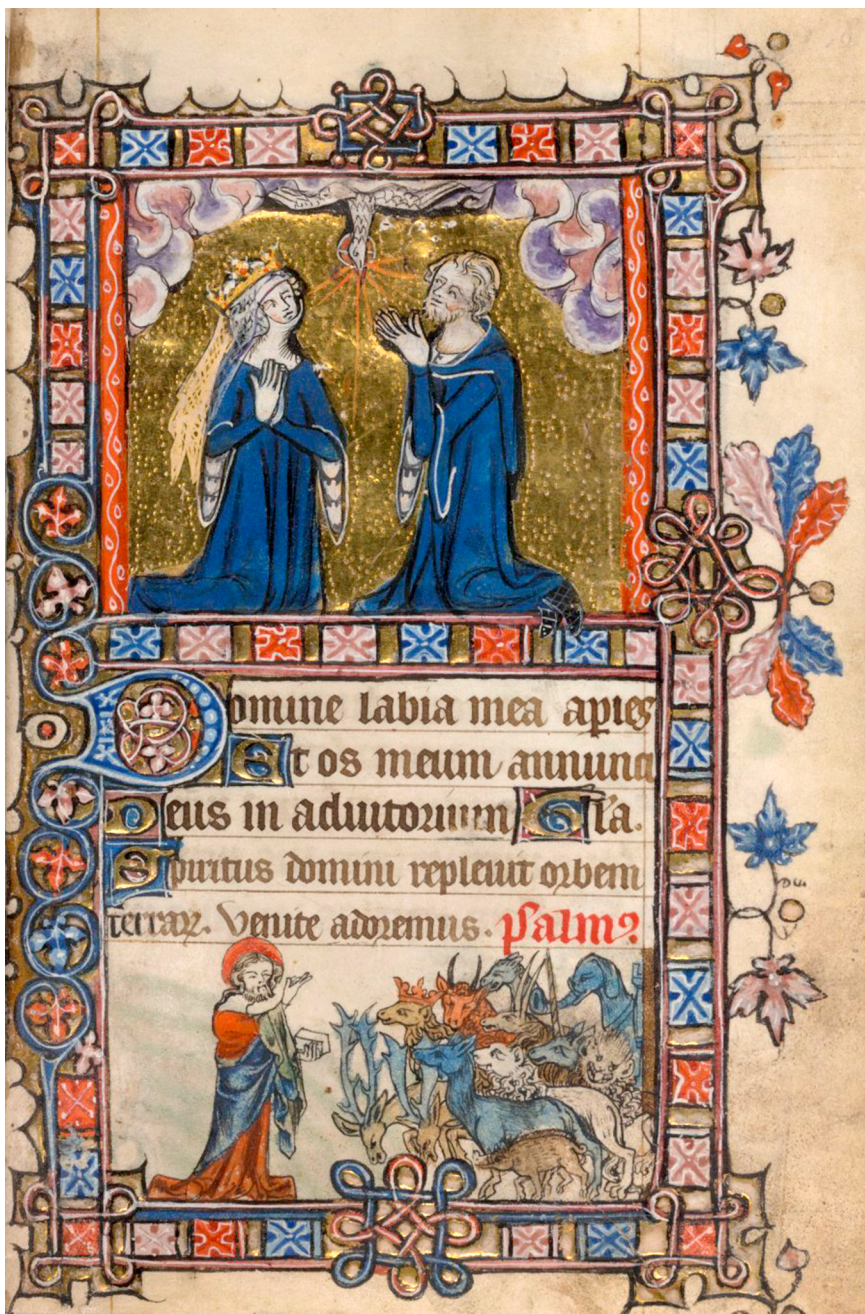 Domine labia mea apies
Et os meum annunci
Deus in adiutorium Gl'a.
Spiritus domini repleuit orbem
terraꝝ. Venite adoremus. psalmꝰ